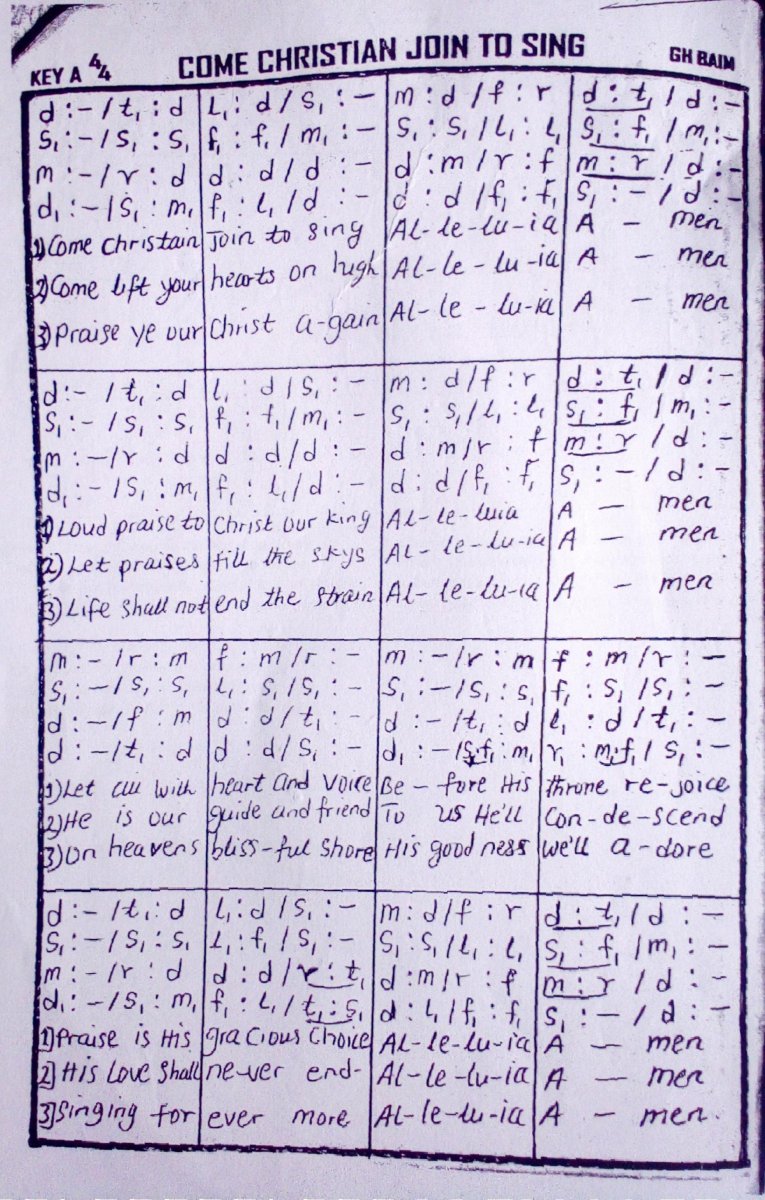 KEY A 4/4 COME CHRISTIAN JOIN TO SING GH BAIM
d :- / t₁ : d L₁ : d / S₁ : - m : d / f : r d : t₁ / d : -
S₁ : - / S₁ : S₁ f₁ : f₁ / m₁ : - S₁ : S₁ / L₁ : L₁ S₁ : f₁ / m₁ : -
m : - / r : d d : d / d : - d : m / r : f m : r / d : -
d₁ : - / S₁ : m₁ f₁ : L₁ / d : - d : d / f₁ : f₁ S₁ : - / d : -
1) Come Christain Join to sing Al-le-lu-ia A - men
2) Come lift your hearts on high Al-le-lu-ia A - men
3) Praise ye our Christ a-gain Al-le-lu-ia A - men
d :- / t₁ : d L₁ : d / S₁ : - m : d / f : r d : t₁ / d : -
S₁ : - / S₁ : S₁ f₁ : f₁ / m₁ : - S₁ : S₁ / L₁ : L₁ S₁ : f₁ / m₁ : -
m : - / r : d d : d / d : - d : m / r : f m : r / d : -
d₁ : - / S₁ : m₁ f₁ : L₁ / d : - d : d / f₁ : f₁ S₁ : - / d : -
1) Loud praise to Christ our king Al-le-luia A - men
2) Let praises fill the skys Al-le-lu-ia A - men
3) Life shall not end the strain Al-le-lu-ia A - men
m : - / r : m f : m / r : - m : - / r : m f : m / r : -
S₁ : - / S₁ : S₁ L₁ : S₁ / S₁ : - S₁ : - / S₁ : S₁ f₁ : S₁ / S₁ : -
d : - / f : m d : d / t₁ : - d : - / t₁ : d L₁ : d / t₁ : -
d : - / t₁ : d d : d / S₁ : - d₁ : - / S₁.f₁ : m₁ r₁ : m₁.f₁ / S₁ : -
1) Let all with heart and voice Be - fore His throne re-joice
2) He is our guide and friend To us He'll Con-de-scend
3) On heavens bliss-ful shore His good ness we'll a-dore
d : - / t₁ : d L₁ : d / S₁ : - m : d / f : r d : t₁ / d : -
S₁ : - / S₁ : S₁ L₁ : f₁ / S₁ : - S₁ : S₁ / L₁ : L₁ S₁ : f₁ / m₁ : -
m : - / r : d d : d / r : t₁ d : m / r : f m : r / d : -
d₁ : - / S₁ : m₁ f₁ : L₁ / t₁ : S₁ d : L₁ / f₁ : f₁ S₁ : - / d : -
1) Praise is His gra cious Choice Al-le-lu-ia A - men
2) His Love shall ne-ver end- Al-le-lu-ia A - men
3) Singing for ever more Al-le-lu-ia A - men